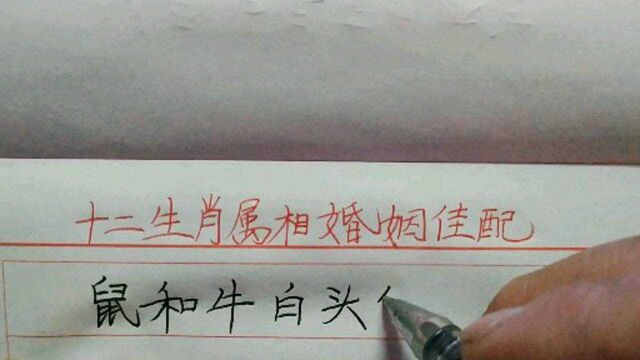 十二生肖属相婚姻佳配
鼠和牛白头